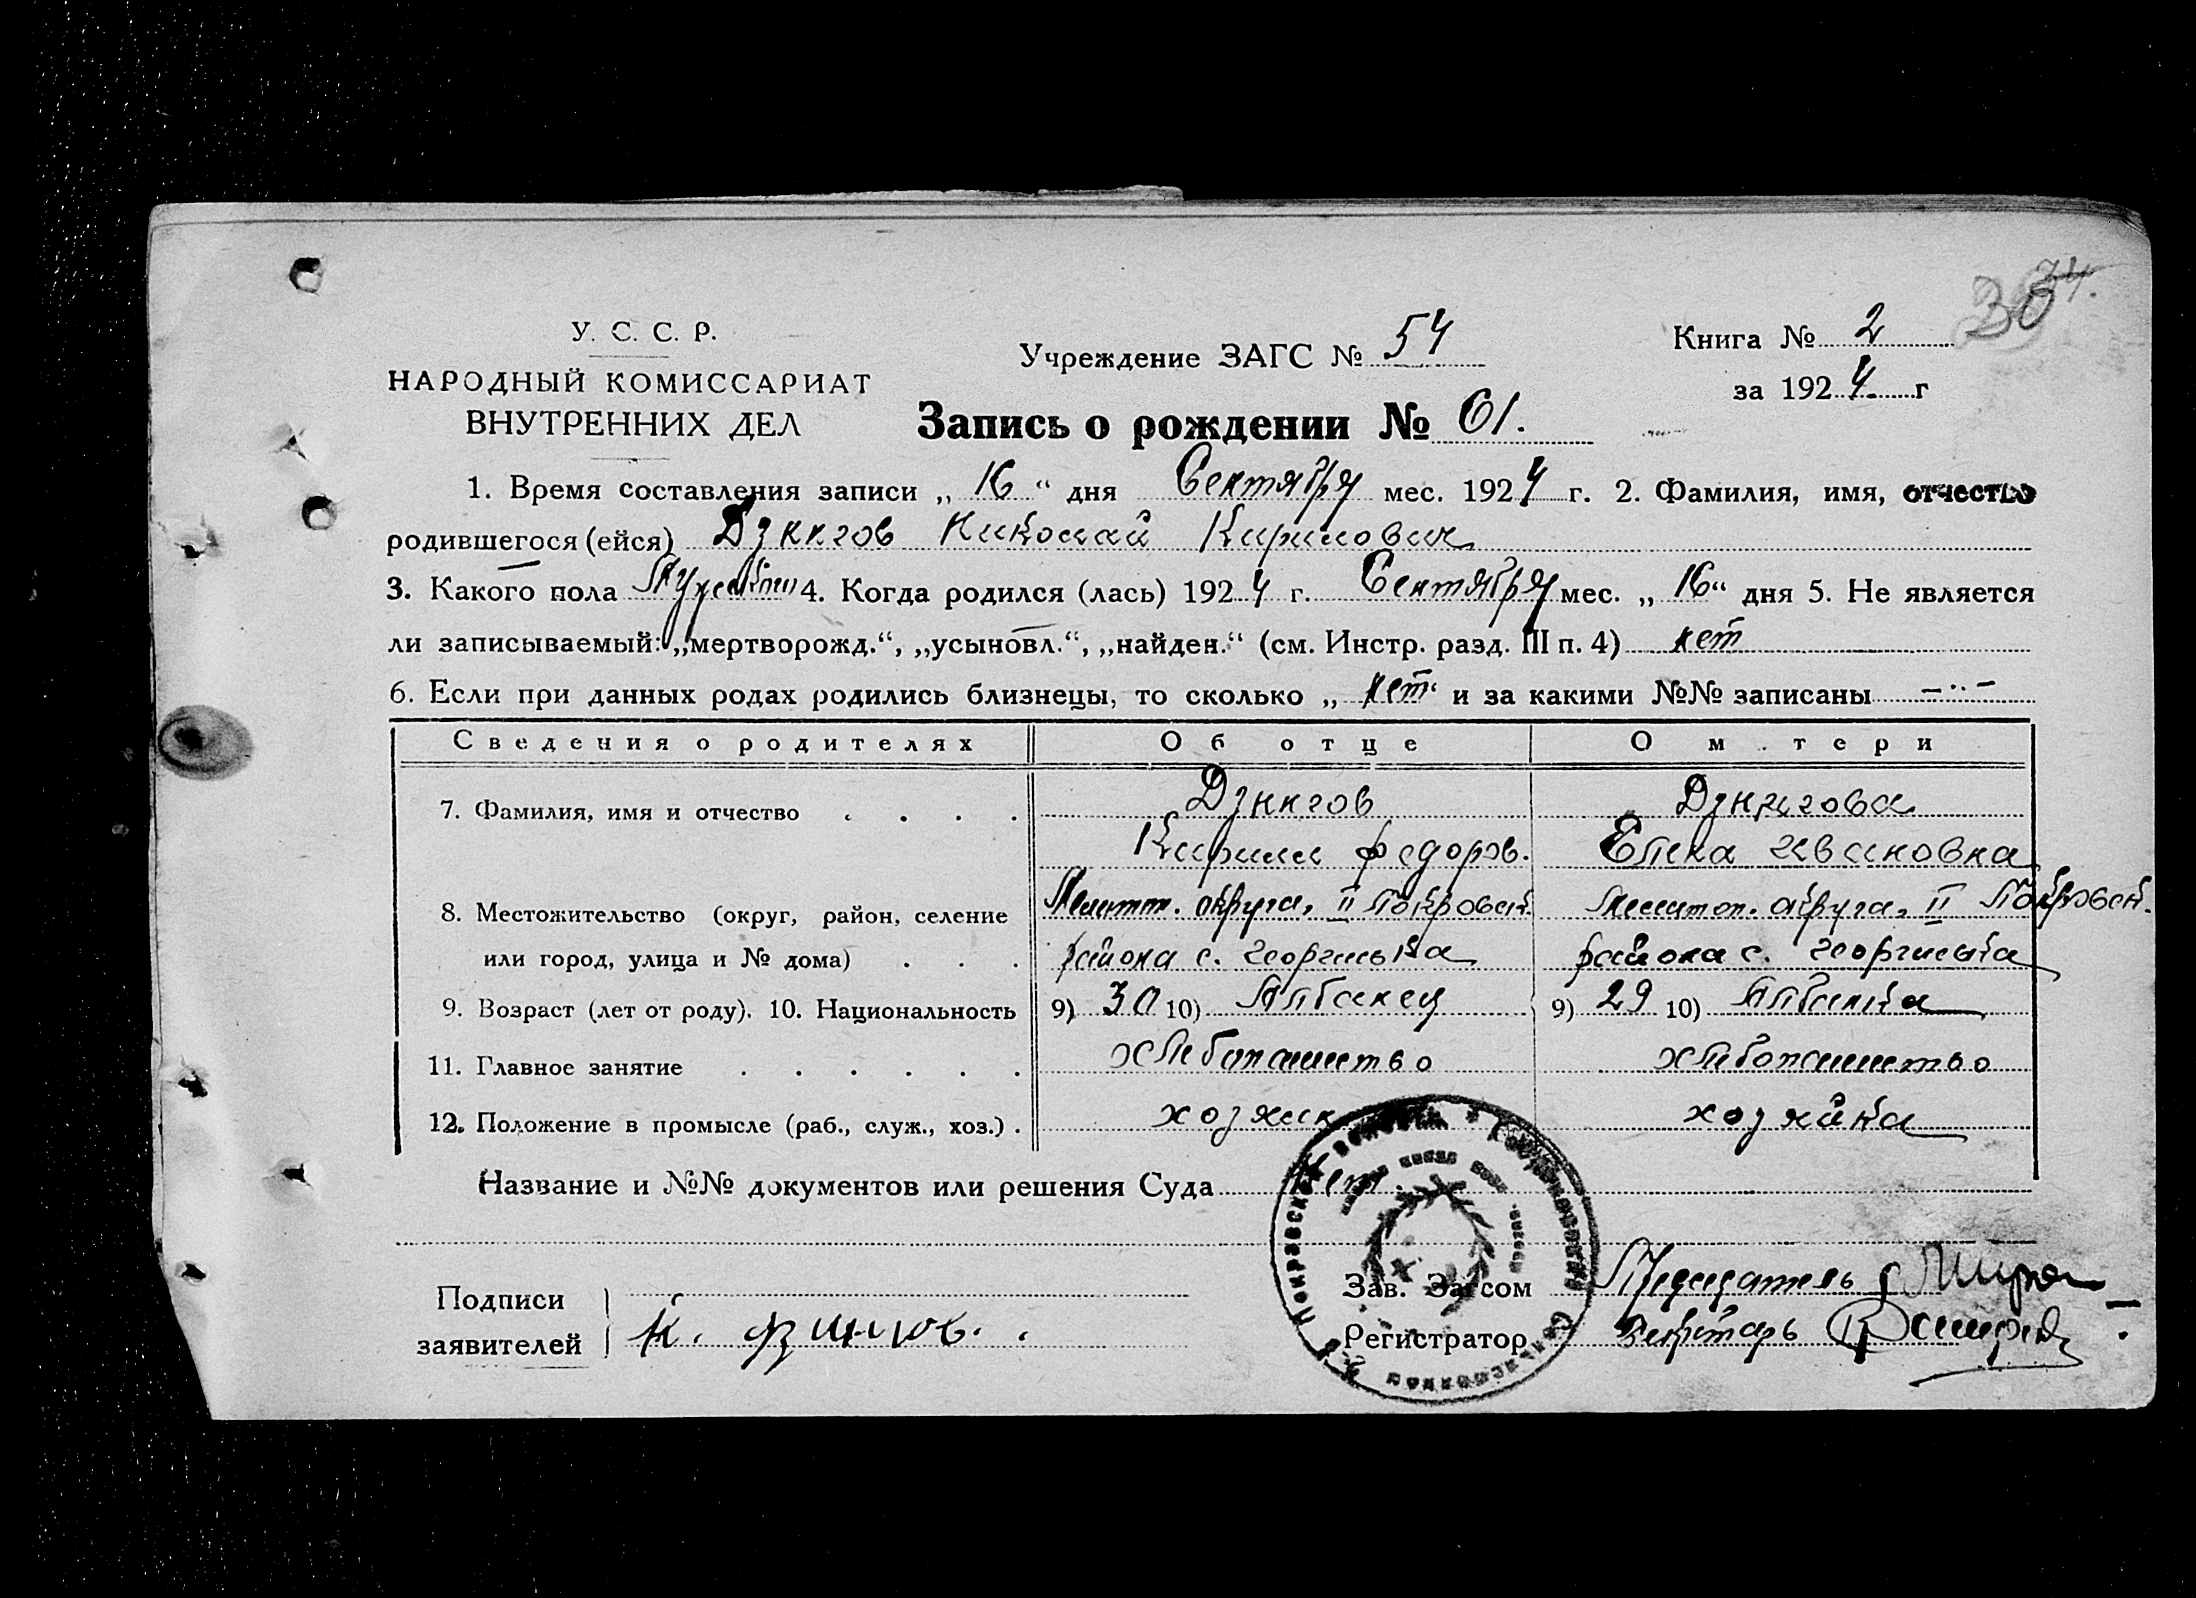 У. С. С. Р.
НАРОДНЫЙ КОМИССАРИАТ
ВНУТРЕННИХ ДЕЛ
Учреждение ЗАГС № 54
Книга № 2
за 1924 г
Запись о рождении № 61.
1. Время составления записи „ 16 “ дня Сентября мес. 1924 г. 2. Фамилия, имя, отчество
родившегося (ейся) Дзингов Николай Кирилович
3. Какого пола Мужской 4. Когда родился (лась) 1924 г. Сентября мес. „ 16 “ дня 5. Не является
ли записываемый: „мертворожд.“, „усыновл.“, „найден.“ (см. Инстр. разд. III п. 4) нет
6. Если при данных родах родились близнецы, то сколько „ нет “ и за какими №№ записаны — “ —
Сведения о родителях Об отце О м.тери
7. Фамилия, имя и отчество . . . . Дзингов Дзингова
Кирилл Федоров. Елена Ивановна
8. Местожительство (округ, район, селение Мелитоп. округа, II Покровск. Мелитоп. округа, II Покровск.
или город, улица и № дома) . . . района с. Георгиевка района с. Георгиевка
9. Возраст (лет от роду). 10. Национальность 9) 30 10) Албанец 9) 29 10) Албанка
11. Главное занятие . . . . . . хлебопашество хлебопашество
12. Положение в промысле (раб., служ., хоз.) . хозяин хозяйка
Название и №№ документов или решения Суда Нет.
Подписи
заявителей К.
Зав. Загсом Председатель
Регистратор Секретарь